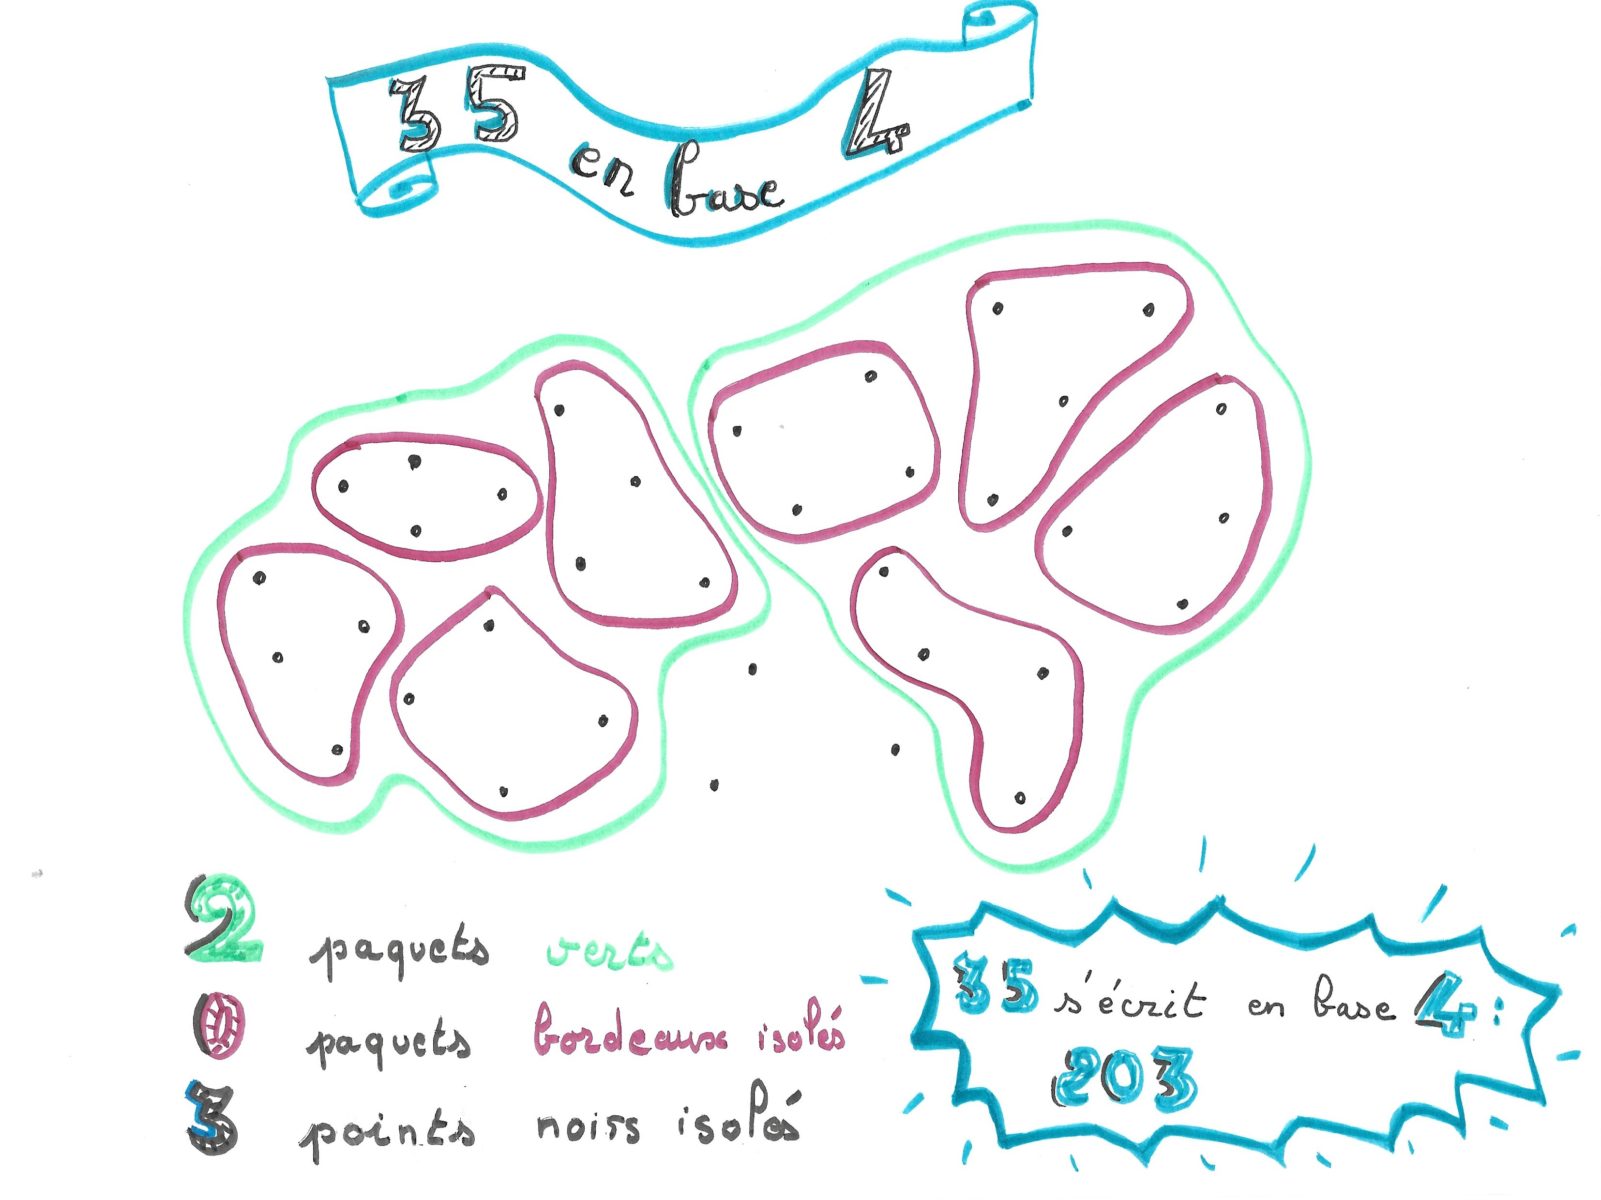 35 en base 4
2 paquets verts
0 paquets bordeaux isolés
3 points noirs isolés
35 s'écrit en base 4 :
203